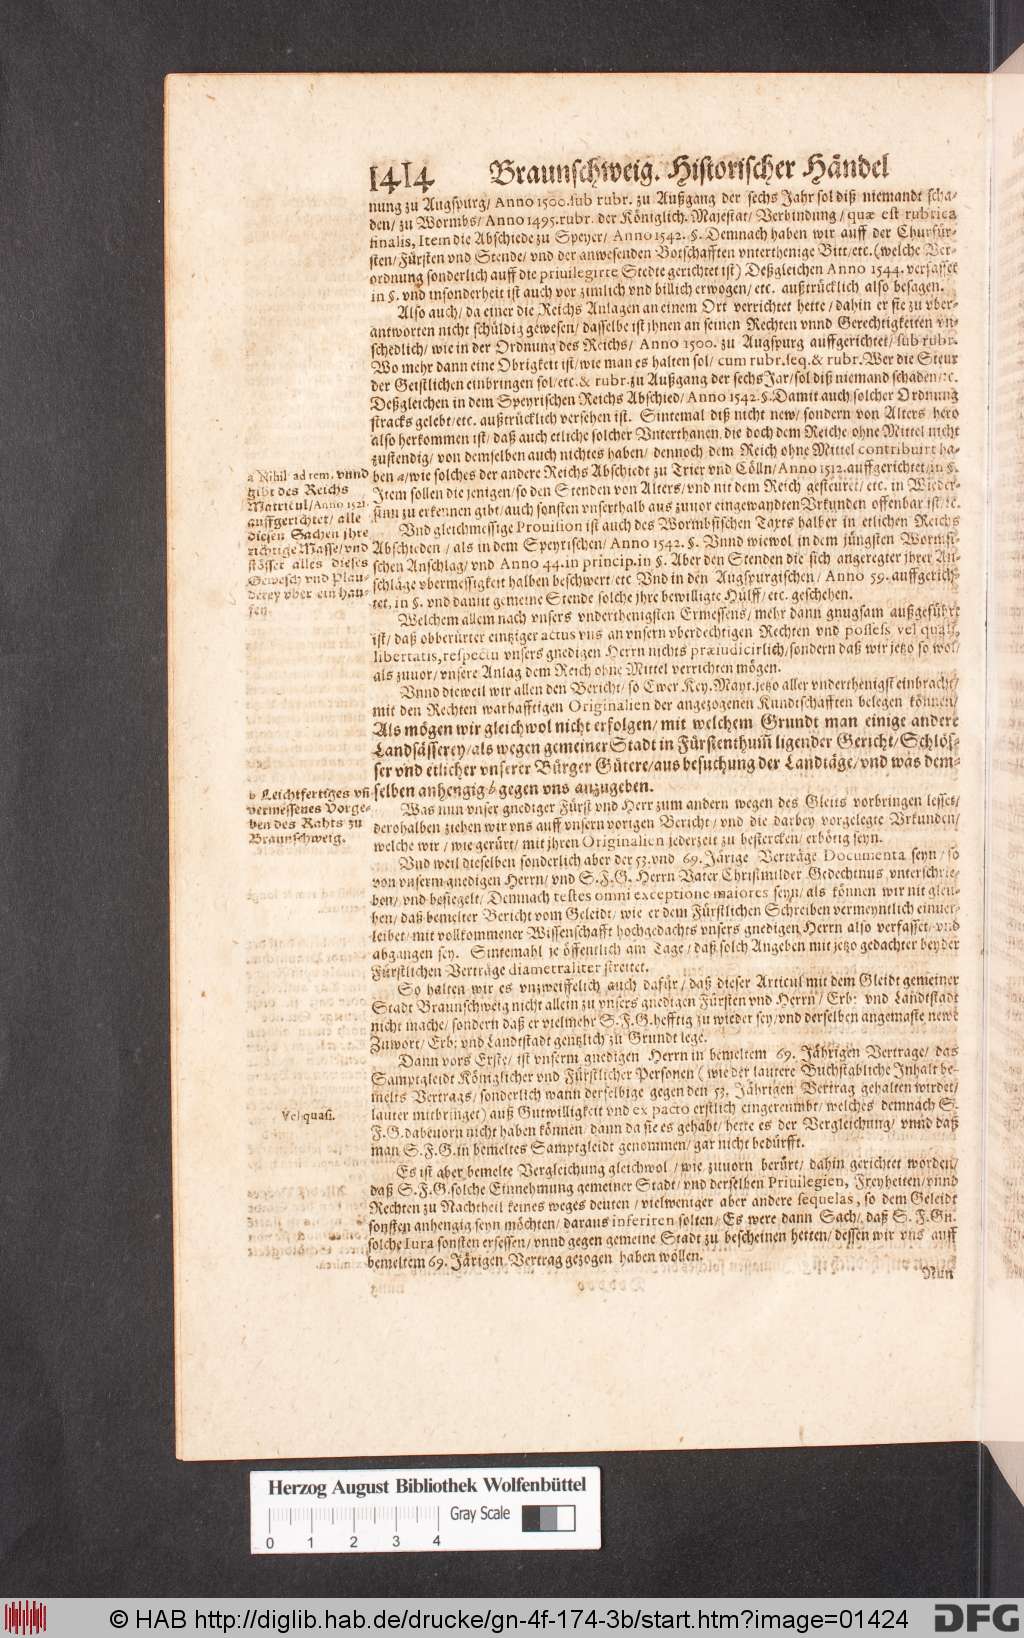 1414 Braunschweig. Historischer Händel
nung zu Augspurg/ Anno 1500. sub rubr. zu Außgang der sechs Jahr sol diß niemandt scha-
den/ zu Wormbs/ Anno 1495. rubr. der Königlich. Majestat/ Verbindung/ quæ est rubrica
finalis, Item die Abschiede zu Speyer/ Anno 1542. §. Demnach haben wir auff der Churfür-
sten/ Fürsten vnd Stende/ vnd der anwesenden Botschafften vnterthenige Bitt/ etc. (welche Ver-
ordnung sonderlich auff die priuilegirte Stedte gerichtet ist) Deßgleichen Anno 1544. verfasset
in §. vnd insonderheit ist auch vor zimlich vnd billich erwogen/ etc. außtrücklich also besagen.
Also auch/ da einer die Reichs Anlagen an einem Ort verrichtet hette/ dahin er sie zu vber-
antworten nicht schüldig gewesen/ dasselbe ist jhnen an seinen Rechten vnnd Gerechtigkeiten vn-
schedlich/ wie in der Ordnung des Reichs/ Anno 1500. zu Augspurg auffgerichtet/ sub rubr.
Wo mehr dann eine Obrigkeit ist/ wie man es halten sol/ cum rubr. seq. & rubr. Wer die Steur
der Geistlichen einbringen sol/ etc. & rubr. zu Außgang der sechs Jar/ sol diß niemand schaden/ ꝛc.
Deßgleichen in dem Speyrischen Reichs Abschied/ Anno 1542. §. Damit auch solcher Ordnung
stracks gelebt/ etc. außtrücklich versehen ist. Sintemal diß nicht new/ sondern von Alters hero
also herkommen ist/ daß auch etliche solcher Vnterthanen, die doch dem Reiche ohne Mittel nicht
zustendig/ von demselben auch nichtes haben/ dennoch dem Reich ohne Mittel contribuirt ha-
ben a/ wie solches der andere Reichs Abschiedt zu Trier vnd Cölln/ Anno 1512. auffgerichtet/ in §.
Item sollen die jenigen/ so den Stenden von Alters/ vnd nit dem Reich gesteuret/ etc. in Wieder-
sinn zu erkennen gibt/ auch sonsten vnserthalb aus zuuor eingewandten Vrkunden offenbar ist/ ꝛc.
Vnd gleichmessige Prouision ist auch des Wormbsischen Taxts halber in etlichen Reichs
Abschieden/ als in dem Speyrischen/ Anno 1542. §. Vnnd wiewol in dem jüngsten Wormsi-
schen Anschlag/ vnd Anno 44. in princip. in §. Aber den Stenden die sich angeregter jhrer An-
schläge vbermessigkeit halben beschwert/ etc Vnd in den Augspurgischen/ Anno 59. auffgerich-
tet, in §. vnd damit gemeine Stende solche jhre bewilligte Hülff/ etc. geschehen.
Welchem allem nach vnsers vnderthenigsten Ermessens/ mehr dann gnugsam außgeführt
ist/ daß obberürter eintziger actus vns an vnsern vberdechtigen Rechten vnd possess vel quasi,
libertatis, respectu vnsers gnedigen Herrn nichts præiudicirlich/ sondern daß wir jetzo so wol/
als zuuor/ vnsere Anlag dem Reich ohne Mittel verrichten mögen.
Vnnd dieweil wir allen den Bericht/ so Ewer Key. Mayt. jetzo aller vnderthenigst einbracht/
mit den Rechten warhafftigen Originalien der angezogenen Kundtschafften belegen können/
Als mögen wir gleichwol nicht erfolgen/ mit welchem Grundt man einige andere
Landsässerey/ als wegen gemeiner Stadt in Fürstenthumb ligender Gericht/ Schlös-
ser vnd etlicher vnserer Bürger Gütere/ aus besuchung der Landtäge/ vnd was dem-
selben anhengig b gegen vns anzugeben.
Was nun vnser gnediger Fürst vnd Herr zum andern wegen des Gleits vorbringen lesset/
derohalben ziehen wir vns auff vnsern vorigen Bericht/ vnd die darbey vorgelegte Vrkunden/
welche wir/ wie gerürt/ mit jhren Originalien jederzeit zu bestercken/ erbötig seyn.
Vnd weil dieselben sonderlich aber der 53. vnd 69. Järige Verträge Documenta seyn/ so
von vnserm gnedigen Herrn/ vnd S. F. G. Herrn Vater Christmilder Gedechtnus vnterschrie-
ben/ vnd besiegelt/ Demnach testes omni exceptione maiores seyn/ als können wir nit gleu-
ben/ daß bemelter Bericht vom Geleidt/ wie er dem Fürstlichen Schreiben vermeyntlich einuer-
leibet/ mit vollkommener Wissenschafft hochgedachts vnsers gnedigen Herrn also verfasset/ vnd
abgangen sey. Sintemahl je öffentlich am Tage/ daß solch Angeben mit jetzo gedachter beyder
Fürstlichen Verträge diametraliter streitet.
So halten wir es vnzweiffelich auch dafür/ daß dieser Articul mit dem Gleidt gemeiner
Stadt Braunschweig nicht allein zu vnsers gnedigen Fürsten vnd Herrn/ Erb- vnd Landtstadt
nicht mache/ sondern daß er vielmehr S. F. G. hefftig zu wieder sey/ vnd derselben angemaste newe
Zuwort/ Erb- vnd Landtstadt gentzlich zu Grundt lege.
Dann vors Erste/ ist vnserm gnedigen Herrn in bemeltem 69. Jährigen Vertrage/ das
Samptgleidt Königlicher vnd Fürstlicher Personen (wie der lautere Buchstäbliche Inhalt be-
melts Vertrags/ sonderlich wann derselbige gegen den 53. Jährigen Vertrag gehalten wirdet/
lauter mitbringet) auß Gutwilligkeit vnd ex pacto erstlich eingereumbt/ welches demnach S.
F. G. dabeuorn nicht haben können/ dann da sie es gehabt/ hette es der Vergleichung/ vnnd daß
man S. F. G. in bemeltes Samptgleidt genommen/ gar nicht bedürfft.
Es ist aber bemelte Vergleichung gleichwol/ wie zuuorn berürt/ dahin gerichtet worden/
daß S. F. G. solche Einnehmung gemeiner Stadt/ vnd derselben Priuilegien, Freyheiten/ vnnd
Rechten zu Nachtheil keines weges deuten/ vielweniger aber andere sequelas, so dem Geleidt
sonsten anhengig seyn möchten/ daraus inferiren solten/ Es were dann Sach/ daß S. F. Gn.
solche Iura sonsten ersessen/ vnnd gegen gemeine Stadt zu bescheinen hetten/ dessen wir vns auff
bemeltem 69. Järigen Vertrag gezogen haben wöllen.
Nun
a Nihil ad rem, vnnd
gibt des Reichs
Matricul/ Anno 1521.
auffgerichtet/ alle
diesen Sachen jhre
richtige Masse/ vnd
stösset alles dieses
Gewesch vnd Plau-
derey vber ein hau-
fen.
b Leichtfertiges vñ
vermessenes Vorge-
ben des Rahts zu
Braunschweig.
Vel quasi.
Herzog August Bibliothek Wolfenbüttel
Gray Scale
0 1 2 3 4
© HAB http://diglib.hab.de/drucke/gn-4f-174-3b/start.htm?image=01424
DFG